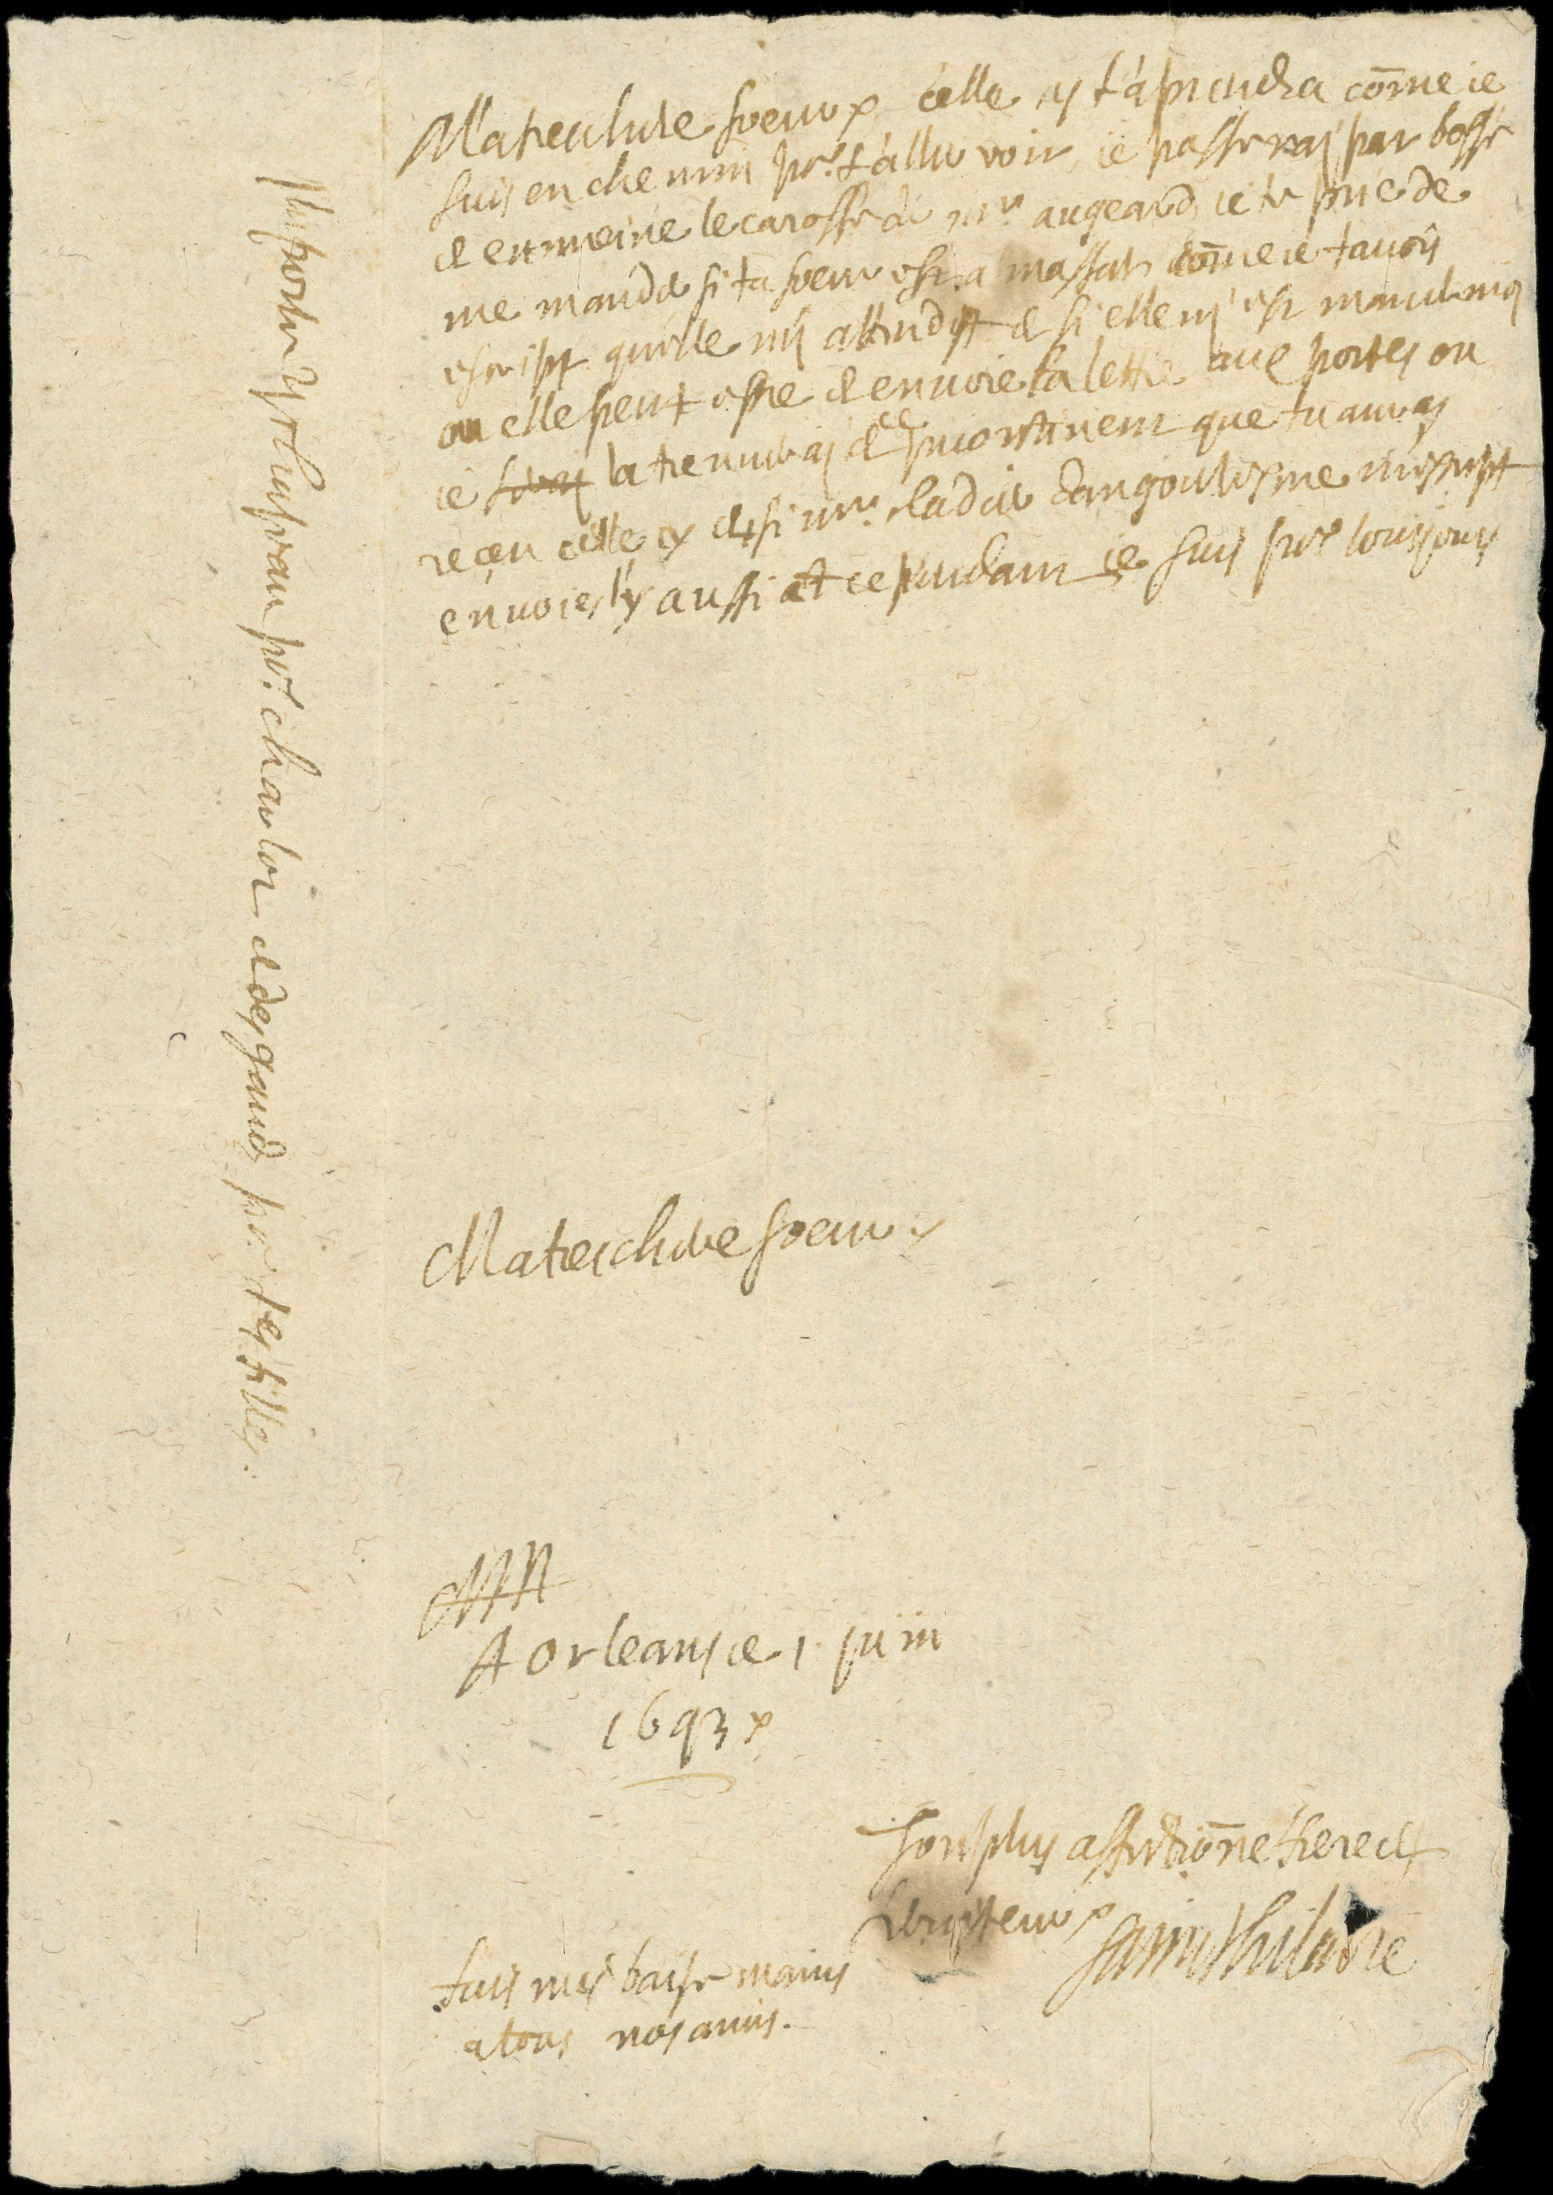 Matrechere soeur celle cy t'aprendra cōme ie
suis en chemin pr. t'aller voir, ie passeray par bosse
et enmeine le carosse de mr. augeard, ie te prie de
me mander si ta soeur est a massat cōme ie tavois
escript quelle my attendist et si elle ny est mande moy
ou elle peut estre et envoie la lettre aux portes ou
ie la trouveray et ce incontinent que tu auras
reçeu celle cy et si me. la duc dangoulesme mescript
envoies ly aussi et cependant ie suis pr. tousjours
Matreschere soeur
A orleans ce 1 juin
1693
Ton plus affectiōne frere et
serviteur sainthilaire
fais mes baise mains
a tous nos amis.
Je porte un chapeau pr. charlot et des gands pr. tes filles.